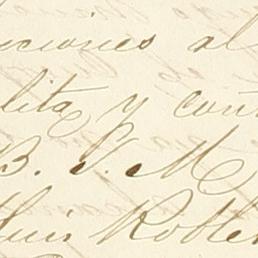 cciones al
lita y con
B. S. M.
Luis Roble